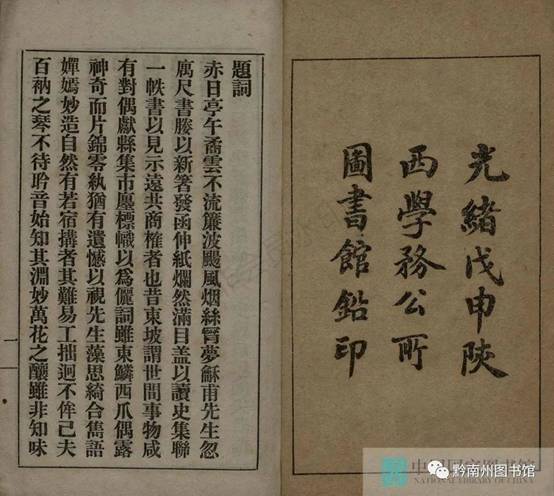 光緒戊申陝
西學務公所
圖書館鉛印
題詞
赤日亭午矞雲不流簾波颺風烟絲胃夢穌甫先生忽
寓尺書媵以新箸發函伸紙爛然滿目盖以讀史集聯
一帙書以見示遠共商榷者也昔東坡謂世間事物咸
有對偶獻縣集市廛標幟以爲儷詞雖東鱗西爪偶露
神奇而片錦零紈猶有遺憾以視先生藻思綺合雋語
嬋嫣妙造自然有若宿搆者其難易工拙迥不侔已夫
百衲之琴不待聆音始知其淵妙萬花之釀雖非知味
一
黔南州图书馆
中国国家图书馆
NATIONAL LIBRARY OF CHINA